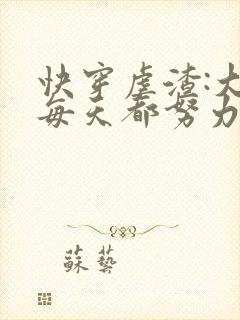 快穿虐渣:大
每天都努力
蘇藝